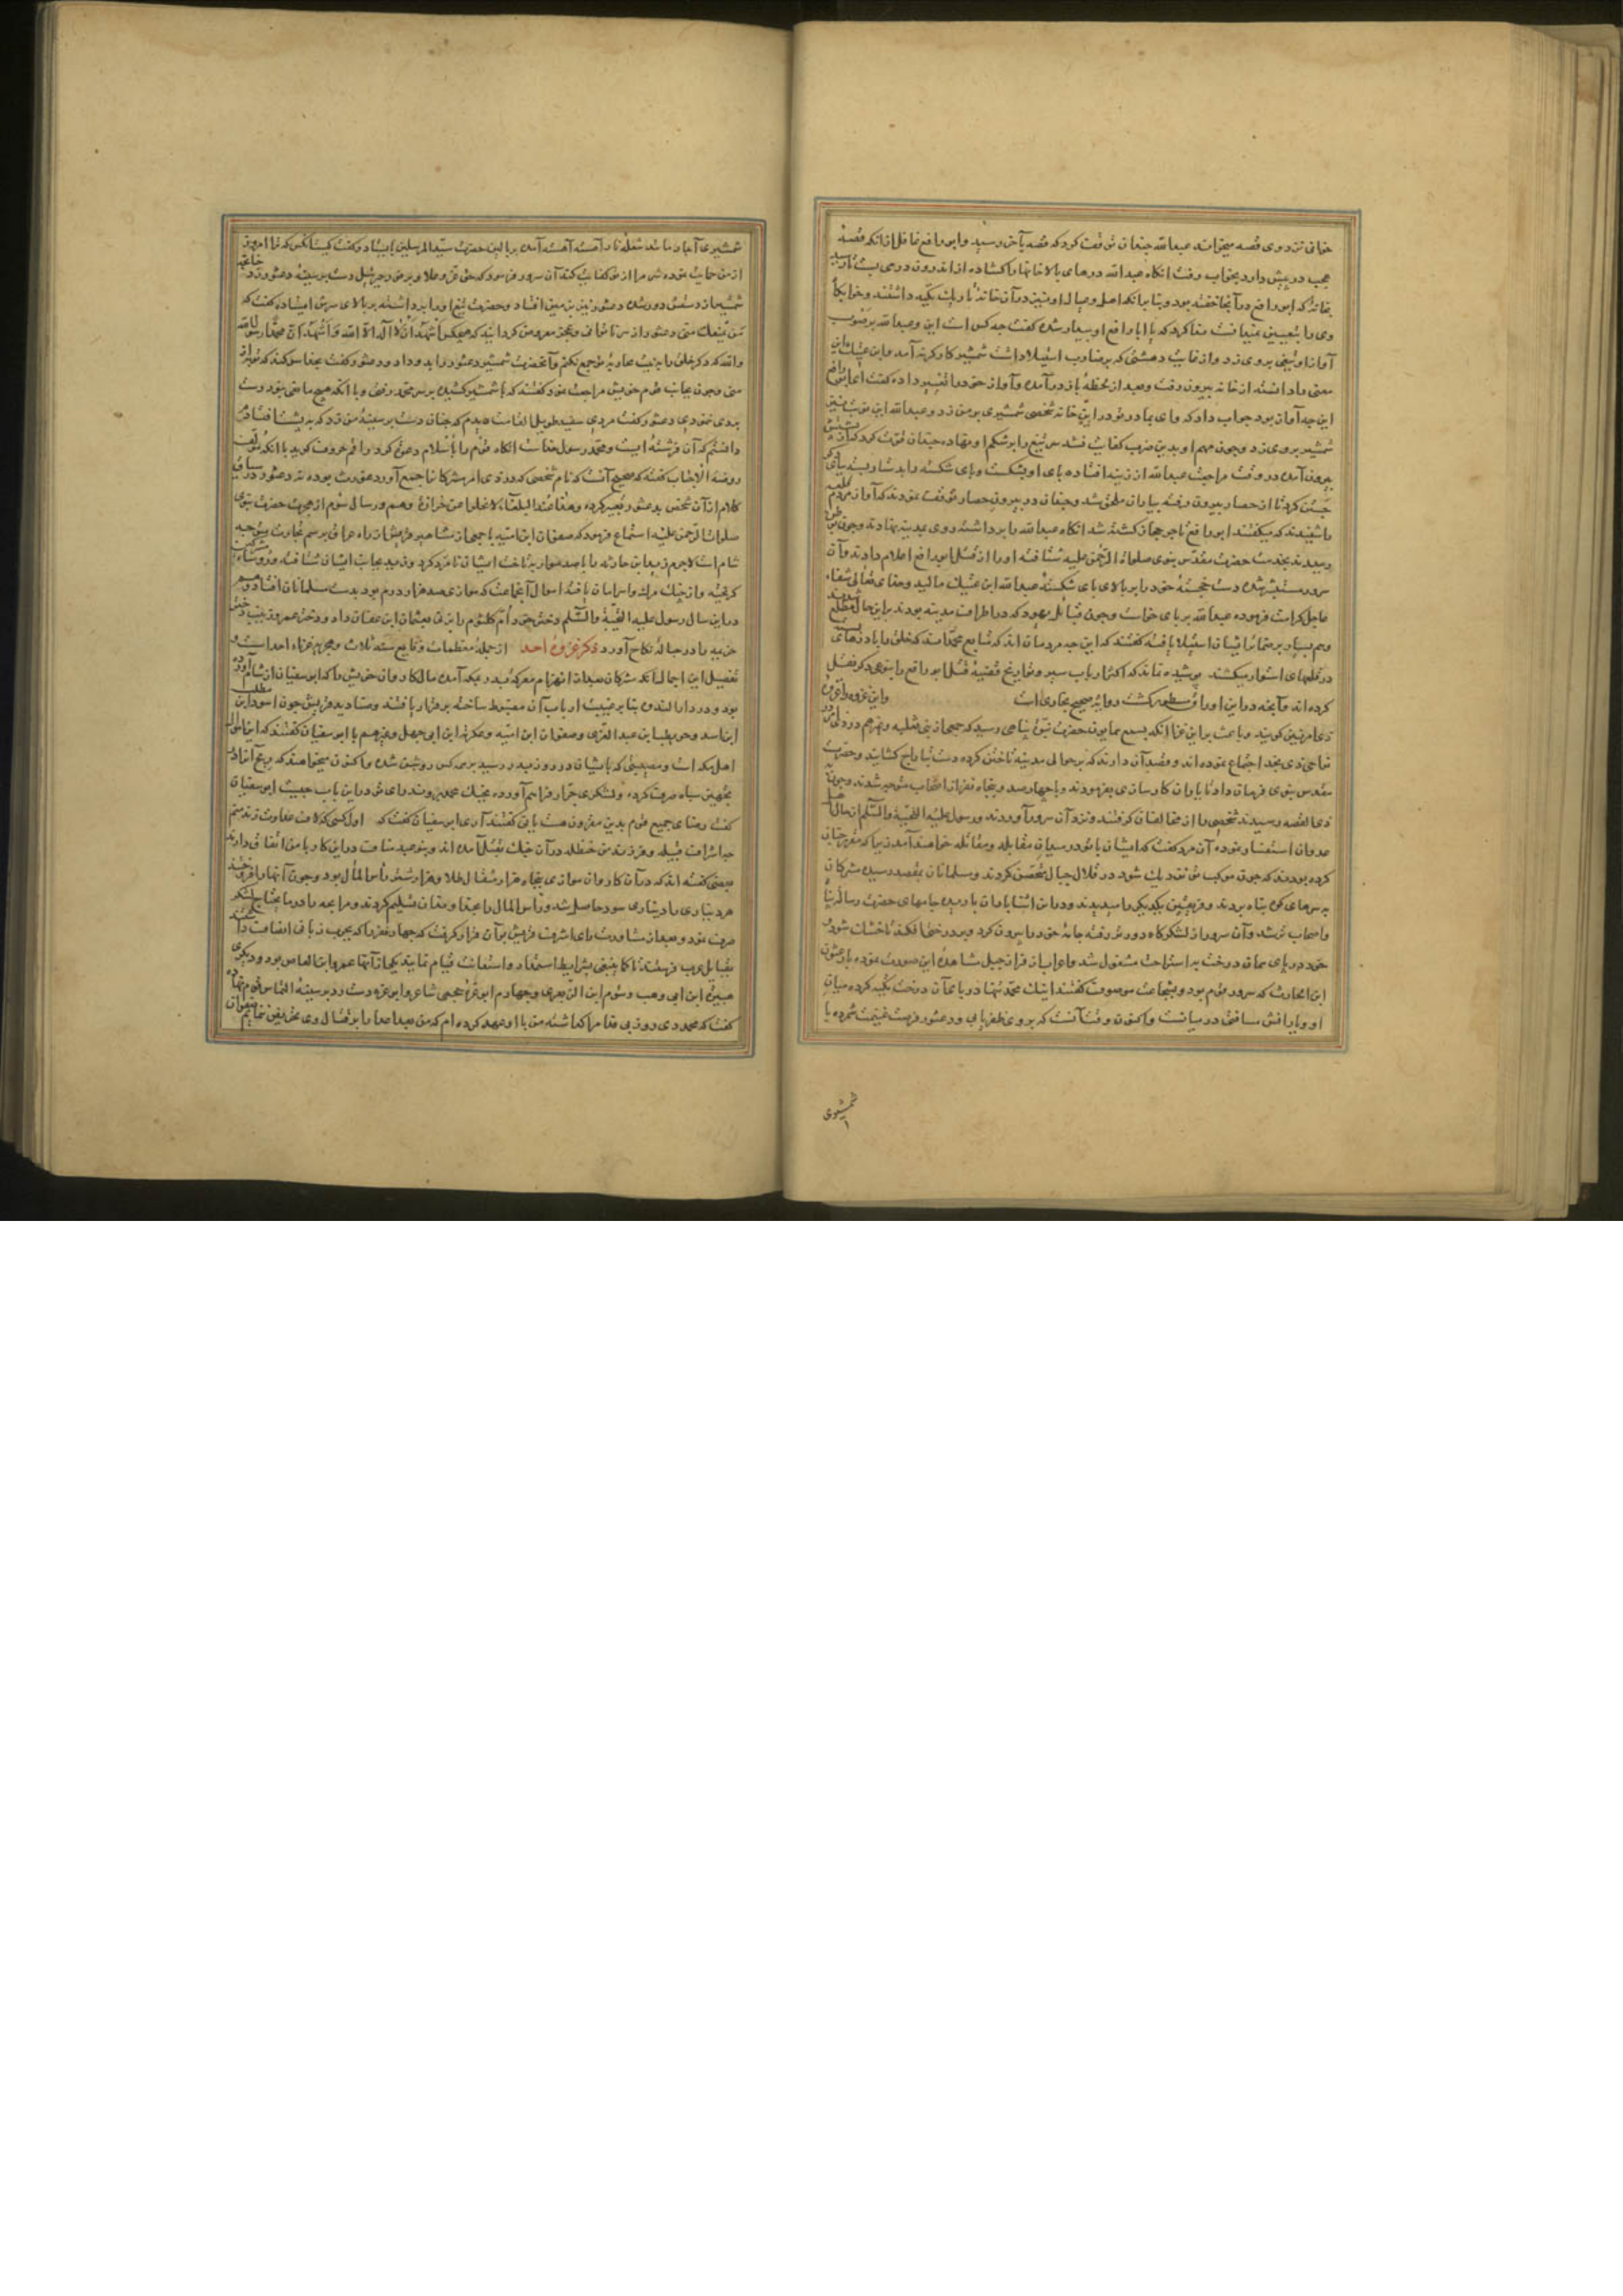 خوانی نزد وی قصه میخواند عبدالله چندان توقف کرد که قصه بآخر رسید و ابورافع غافل از آنکه قصه
عجب در پیش دارد بخواب رفت آنگاه عبدالله درهای بالاخانها را کشاده از اندرون در می بست تا رسید
بخانه که ابورافع در آنجا خفته بود و بنا بر آنکه اهل و عیال او نیز در آن خانه تاریک تکیه داشتند و خوابگاه
وی را بتعیین نمیدانست ندا کرد که یا ابا رافع او بیدار شده گفت چه کس است این و عبدالله بر صوب
آواز او تیغی بروی زد و از غایت دهشتی که بر ضارب استیلا داشت شمشیر کارگر نه آمد و ابن عتیک این
معنی دانسته از خانه بیرون رفت و بعد از لحظهٔ باز در آمده و آواز خود را تغییر داده گفت ای ابورافع
این چه آواز بود جواب داد که وای بمادر تو در این خانه شخصی شمشیری بر من زد و عبدالله این نوبت نیز
شمشیر بروی زد و چون مهم او بدین ضرب کفایت نشد سر تیغ را بر شکم او نهاده چندان قوت کرد که از
بیرون آمده در وقت مراجعت عبدالله از زینه افتاده پای او بشکست و پای شکسته را بدستار بسته
کرد تا از حصار بیرون رفته بیاران ملحق شد و چندان در بیرون حصار توقف نمودند که آواز مردم
را شنیدند که میگفتند ابورافع تاجر حجاز کشته شد آنگاه عبدالله را برداشته روی بمدینه نهادند و چون
رسیدند بخدمت حضرت مقدس نبوی صلوات الرحمن علیه شتافته او را از قتل ابورافع اعلام دادند و آن
سرور مستبشر شده دست خجسته خود را بر بالای پای شکستهٔ عبدالله ابن عتیک مالید و خدای تعالی شفاء
عاجل کرامت فرموده عبدالله بر پای خواست و چون قبایل یهود که در اطراف مدینه بودند بر این حال مطلع شدند
وهم بسیار بر ضمایر ایشان استیلا یافته گفتند که این چه مردمان اند که متابع محمدامند که خلق را با درهای بسته
در قلعهای استوار میکشند پوشیده نماند که اکثر ارباب سیر و تواریخ قضیهٔ قتل ابورافع را بنوعی دیگر نقل
کرده اند و آنچه در این اوراق مسطور گشت روایة صحیح بخاری است و این غزوه را غزوه
ذی امر نیز گویند و باعث بر این غزا آنکه بسمع همایون حضرت نبوت پناهی رسید که جمعی از بنی ثعلبه و غیرهم در
نواحی ذی نجد اجتماع نموده اند و قصد آن دارند که بر حوالی مدینه تاختن کرده دست بتاراج کشایند و حضرت
مقدس نبوی فرمان داد تا یاران کارسازی بفرمودند و با چهارصد و پنجاه نفر از اصحاب متوجه شدند و چون
ذی القصه رسیدند شخصی را از مخالفان گرفتند و نزد آن سرور آوردند و رسول علیه التحیة والسلم از حال
عدوان استفسار نموده آن مرد گفت که ایشان با تو در میدان مقابله و مقاتله نخواهند آمد زیرا که مقرر چنان
کرده بودند که چون موکب تو نزدیک شود در قلال جبال متحصن گردند و مسلمانان بمقصد رسیده مشرکان
بسرهای کوه پناه بردند و فریقین یکدیگر را میدیدند و در این اثنا باران باریده جامهای حضرت رسالت پناه
و اصحاب تر شد و آن سرور از لشکرگاه دورتر رفته جامهٔ خود را بیرون کرد و بر درختی افکند تا خشک شود و
خود در پای همان درخت به استراحت مشغول شد و اعراب از فراز جبل مشاهدهٔ این صورت نموده با دعثور
ابن الحارث که سرور قوم بود و بشجاعت موصوف گفتند اینک محمد تنها در پای آن درخت تکیه کرده میان
او و یارانش مسافتی در میانست و اکنون وقت آنست که بروی ظفر یابی و دعثور فرصت غنیمت شمرده با
شمشیری
شمشیری آبدار مانند شعلهٔ نار آهسته آهسته آمده بر بالین حضرت سید المرسلین ایستاد و گفت کیست آنکس که ترا امروز
از من حمایت نموده شر مرا از تو کفایت کند آن سرور فرمود که حق عز و علا و بر فور جبرئیل دست بر سینهٔ دعثور زد
شمشیر از دستش دور شده دعثور نیز بر زمین افتاد و حضرت تیغ او را برداشته بر بالای سرش ایستاده گفت که
من یمنعک منی دعثور از سر ناتوانی و عجز معروض گردانید که هیچکس اشهد ان لا اله الا الله و اشهد ان محمدا رسول الله
والله که دگر خلق را بترتیب محاربه تو جمع نکنم و آنحضرت شمشیر دعثور را بدو داد و دعثور گفت بخدا سوگند که تو بهتر از
منی و چون بجانب قوم خویش مراجعت نمود گفتند که با شمشیر کشیده بر سر محمد رفتی و با آنکه هیچ مانعی نبود دست
بروی نمودی دعثور گفت مردی سفید طویل القامت دیدم که چنان دست بر سینهٔ من زد که به پشت افتادم
دانستم که آن فرشته ایست و محمد رسول خداست آنگاه قوم را باسلام دعوت کرد راقم حروف گوید با آنکه مؤلف
روضة الاحباب گفته که صحیح آنست که نام شخصی که در ذی امر مشرکانرا جمع آورد غورث بوده نه دعثور در سیاق
کلام از آن شخص بدعثور تعبیر کرده و هذا عند البلغاء لا یخلوا من حزازة وهم در سال سوم از هجرت حضرت نبوی
صلوات الرحمن علیه استماع فرمود که صفوان ابن امیه با جمعی از مشاهیر قریش از راه عراق برسم تجارت متوجه
شام است لاجرم زید ابن حارثه را با صد سوار بتاخت ایشان نامزد کرد و زید بجانب ایشان شتافته
گریخته و از چنگ مرگ و اسر امان یافتند اموال آنجماعت که موازی صد هزار درم بود بدست مسلمانان افتاد و
در این سال رسول علیه التحیة والسلم دختر خود ام کلثوم را بزنی بعثمان ابن عفان داد و دختر عمر و زینب دختر
خزیمه را در حبالهٔ نکاح آورد ذکر غزوهٔ احد از جملهٔ معظمات وقایع سنه ثلاث من هجریه غزاء احد است و
تفصیل این اجمال آنکه مشرکان بعد از انهزام معرکهٔ بدر بمکه آمده مال کاروان خویش را که ابوسفیان از شام آورده
بود و در دارالندوه بنا بر غیبت ارباب آن مضبوط ساخته بر قرار یافتند و صنادید قریش چون اسود ابن مطلب
ابن اسد و حویطب ابن عبدالعزی و صفوان ابن امیه و عکرمه ابن ابی جهل و غیرهم با ابوسفیان گفتند که این اموال
اهل مکه است و مصیبتی که بایشان در روز بدر رسید بر همه کس روشن شده و اکنون میخواهند که ربح آنرا در
تجهیز سپاه صرف کرده و لشکری جرار فراهم آورده بجنگ محمد روند رای تو در این باب چیست ابوسفیان
گفت رضای جمیع قوم بدین مقرون هست یا نی گفتند آری ابوسفیان گفت که اول کسی که لاف عداوت زند منم
چه اشراف قبیله و فرزند من حنظله در آن جنگ بقتل آمده اند و بنو عبد مناف در این کار با من اتفاق دارند
بعضی گفته اند که در آن کاروان موازی پنجاه هزار مثقال طلا و هزار شتر رأس المال بود و چون آنها را فروختند
هر دیناری را دیناری سود حاصل شد و رأس المال را بخداوندان تسلیم کردند و مرابحه را در ما یحتاج لشکر
صرف نمود و بعد از مشاورت رای اشرف قریش بر آن قرار گرفت که چهار نفر را که بچرب زبانی اتصاف داشتند
بقبایل عرب فرستند تا کما ینبغی بشرایط استمداد و استعانت قیام نمایند یکی از آنها عمرو ابن العاص بود و دیگری
هبیرة ابن ابی وهب و سوم ابن الزبعری و چهارم ابو عزه جمحی شاعر و ابو عزه دست رد بر سینهٔ التماس قوم نهاده
گفت که محمد در روز بی فدا مرا گذاشته من با او عهد کرده ام که من بعد اعدا را بر قتال وی تحریض ننمایم